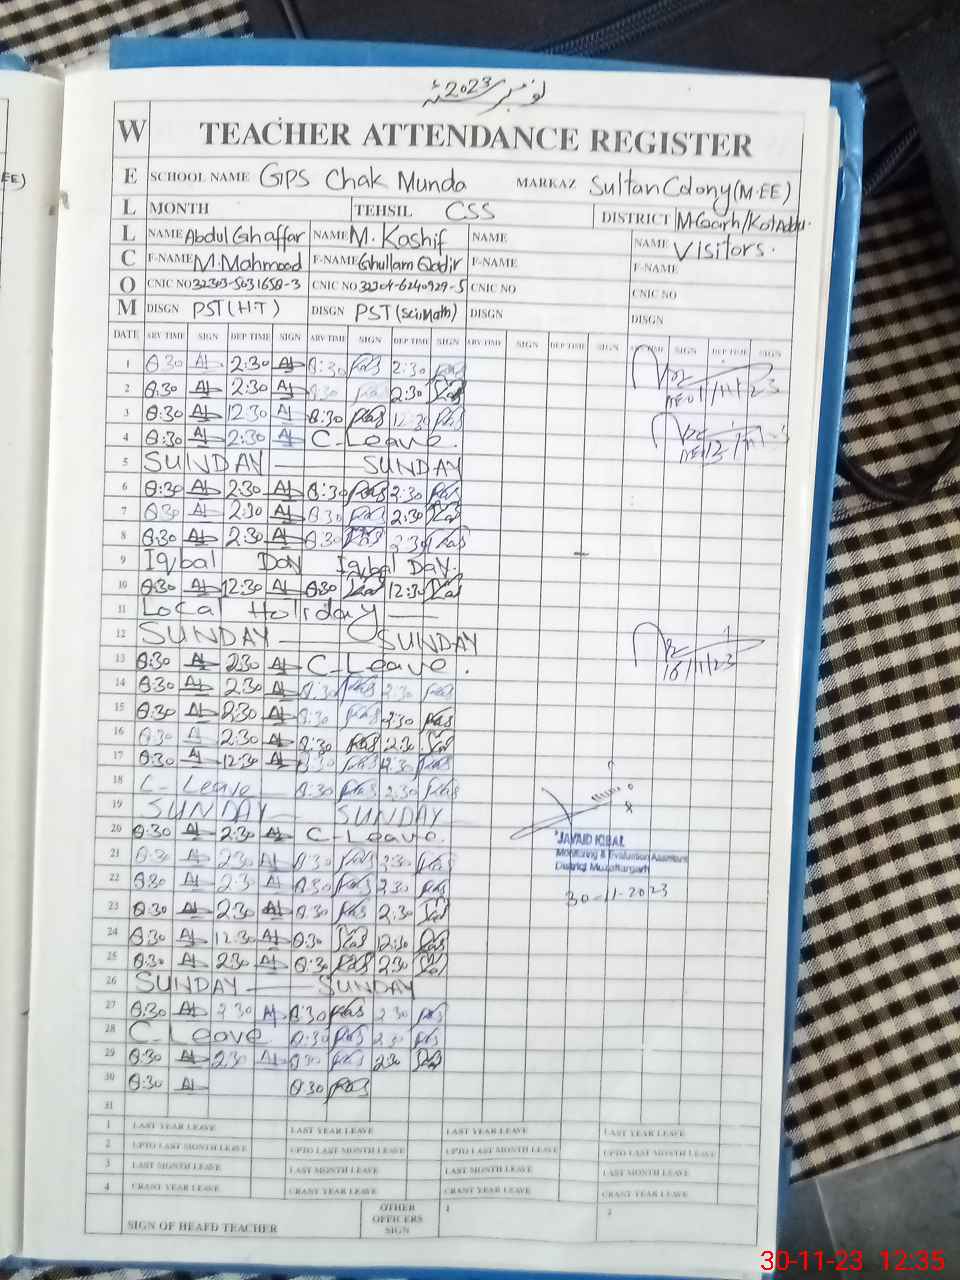 نومبر 2023ء
W TEACHER ATTENDANCE REGISTER
E SCHOOL NAME GPS Chak Munda MARKAZ Sultan Colony (M-EE)
L MONTH TEHSIL CSS DISTRICT M.Garh/Kot Addu.
L NAME Abdul Ghaffar NAME M. Kashif NAME NAME Visitors.
C F-NAME M. Mahmood F-NAME Ghullam Qadir F-NAME F-NAME
O CNIC NO 32303-5031658-3 CNIC NO 32304-6240929-5 CNIC NO CNIC NO
M DISGN PST (H.T) DISGN PST (Sci.Math) DISGN DISGN
DATE ARV TIME SIGN DEP TIME SIGN ARV TIME SIGN DEP TIME SIGN ARV TIME SIGN DEP TIME SIGN ARV TIME SIGN DEP TIME SIGN
1 8:30 2:30 8:30 2:30 1/11/23
2 8:30 2:30 8:30 2:30
3 8:30 12:30 8:30 12:30
4 8:30 2:30 C-Leave.
5 SUNDAY SUNDAY
6 8:30 2:30 8:30 2:30
7 8:30 2:30 8:30 2:30
8 8:30 2:30 8:30 2:30
9 Iqbal Day Iqbal Day.
10 8:30 12:30 8:30 12:30
11 Local Holiday
12 SUNDAY SUNDAY
13 8:30 2:30 C-Leave. 16/11/23
14 8:30 2:30 8:30 2:30
15 8:30 2:30 8:30 2:30
16 8:30 2:30 8:30 2:30
17 8:30 12:30 8:30 12:30
18 C-Leave 8:30 2:30
19 SUNDAY SUNDAY
20 8:30 2:30 C-Leave.
JAVAID IQBAL
Monitoring & Evaluation Assistant
District Muzaffargarh
30-11-2023
21 8:30 2:30 8:30 2:30
22 8:30 2:30 8:30 2:30
23 8:30 2:30 8:30 2:30
24 8:30 12:30 8:30 12:30
25 8:30 2:30 8:30 2:30
26 SUNDAY SUNDAY
27 8:30 2:30 8:30 2:30
28 C-Leave 8:30 2:30
29 8:30 2:30 8:30 2:30
30 8:30 8:30
31
1 LAST YEAR LEAVE LAST YEAR LEAVE LAST YEAR LEAVE LAST YEAR LEAVE
2 UPTO LAST MONTH LEAVE UPTO LAST MONTH LEAVE UPTO LAST MONTH LEAVE UPTO LAST MONTH LEAVE
3 LAST MONTH LEAVE LAST MONTH LEAVE LAST MONTH LEAVE LAST MONTH LEAVE
4 CRANT YEAR LEAVE CRANT YEAR LEAVE CRANT YEAR LEAVE CRANT YEAR LEAVE
SIGN OF HEAFD TEACHER OTHER OFFICERS SIGN 1 2
30-11-23 12:35